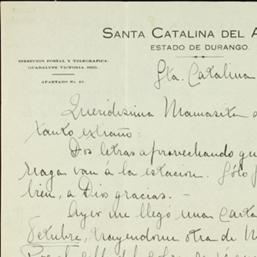 SANTA CATALINA DEL A
ESTADO DE DURANGO.
DIRECCION POSTAL Y TELEGRAFICA.
GUADALUPE VICTORIA, DGO.
APARTADO No.
Sta. Catalina
Queridisima Mamasita
tanto extraño:
Dos letras aprovechando qu
van á la estacion. Sólo
bien, a Dios gracias.-
Ayer me llegó una carta
Octubre, trayendome otra de M